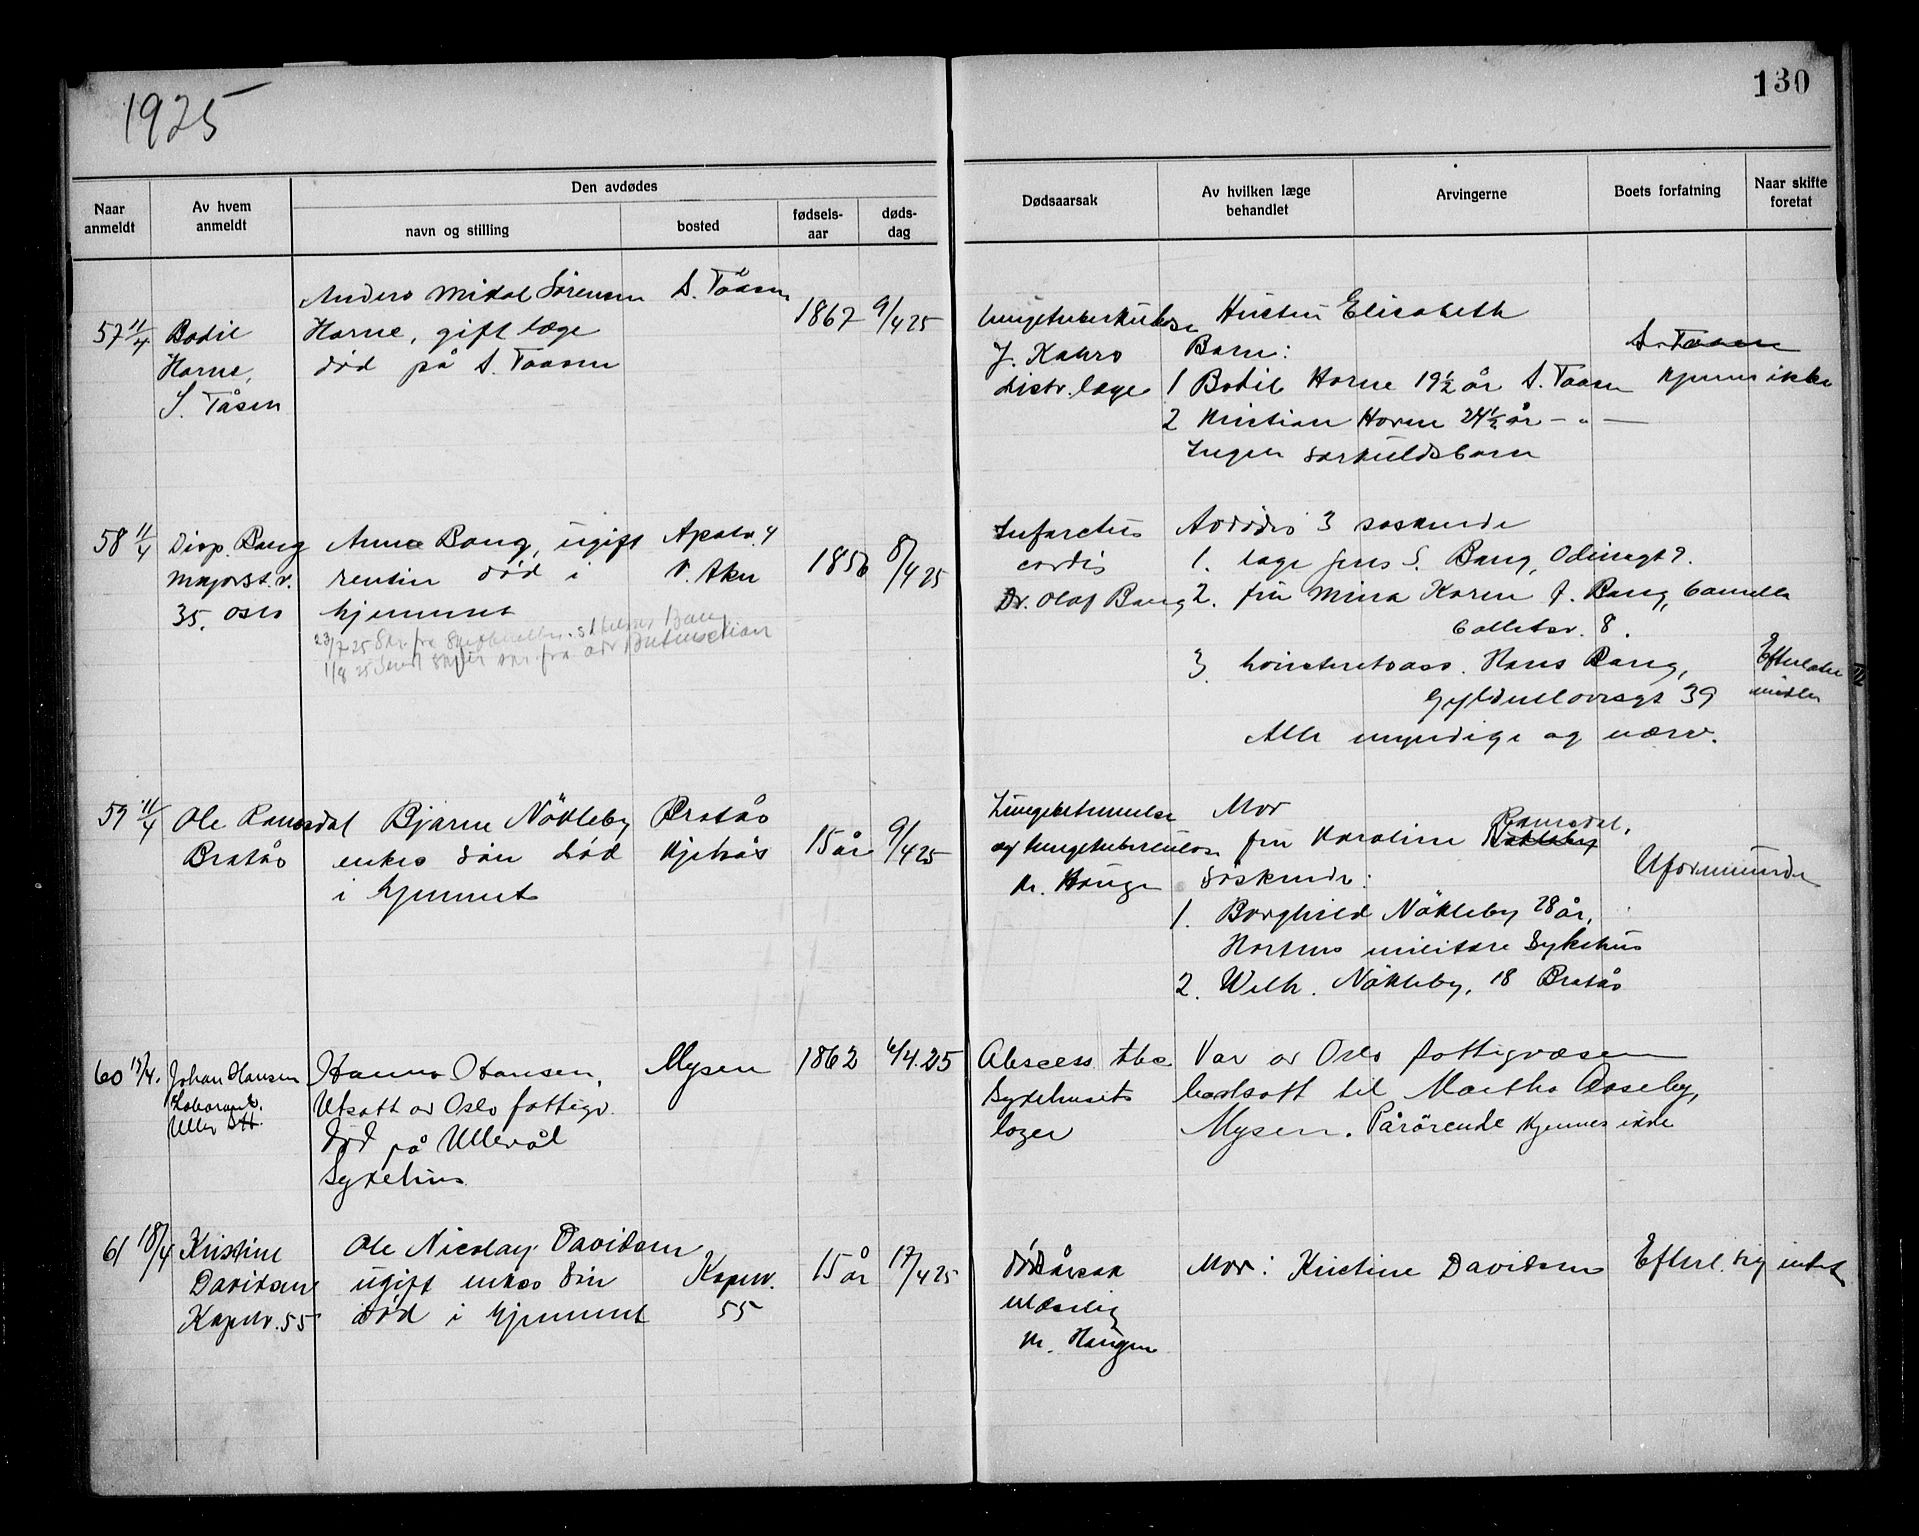 1925
130
Naar anmeldt
Av hvem anmeldt
Den avdødes
navn og stilling
bosted
fødsels-aar
døds-dag
Dødsaarsak
Av hvilken læge behandlet
Arvingerne
Boets forfatning
Naar skifte foretat
57 11/4
Bodil
Horne,
S. Tåsen
Anders Mikal Sörensen
Horne, gift læge
död på S. Taasen
S. Tåasen
1867
9/4 25
Lungetuberkulose
J. Kahrs
distr. læge
Hustru Elisabeth
Barn:
1 Bodil Horne 19½ år S. Taasen
2 Kristian Horne 24½ år - " -
Ingen særkuldsbarn
S. Taasen
kjennes ikke
58 11/4
Disp. Bang
Majorst.v.
35. Oslo
Anna Bang, ugift
rentier död i
hjemmet
1/8 25 Sendt
Apalv. 4
V. Aker
1856
8/4 25
Infarctus
cordis
Dr. Olaf Bang
Avdödes 3 söskende
1. læge Jens S. Bang, Odinsgt 9.
2. fru Mina Karen f. Bang, Camilla
Colletsv. 8.
3. Hans Bang,
Gyldenlövesgt 39
Alle myndige og nærv.
Efterlater
midler
59 11/4
Ole Ramsdal
Bratås
Bjarne Nökleby
enkes sön död
i hjemmet
Bratås
Kjelsås
15 år
9/4 25
Lungebetennelse
og lungetuberculose
Mor
fru Karoline Nökleby Ramsdal,
Söskende:
1. Borghild Nökleby 28 år,
Hortens militære Sykehus
2. Wilh. Nökleby, 18 Bratås
Uformuende
60 18/4.
Johan Hansen
Laborant.
Hanna Hansen,
Utsatt av Oslo fattigv.
död på Ullevål
Sykehus
Mysen
1862
6/4.25
Abscess tbc
Sykehusets
læger
Var av Oslo fattigvæsen
bortsatt til Martha Aaseby,
Mysen. Pårörende kjennes ikke
61 18/4
Kristine
Davidsen
Kapelv. 55
Ole Nicolay Davidsen
ugift enkes sön
död i hjemmet
Kapelv.
55
15 år
17/4 25
Dödsårsak
ulæselig
Mor: Kristine Davidsen
Efterl. sig intet